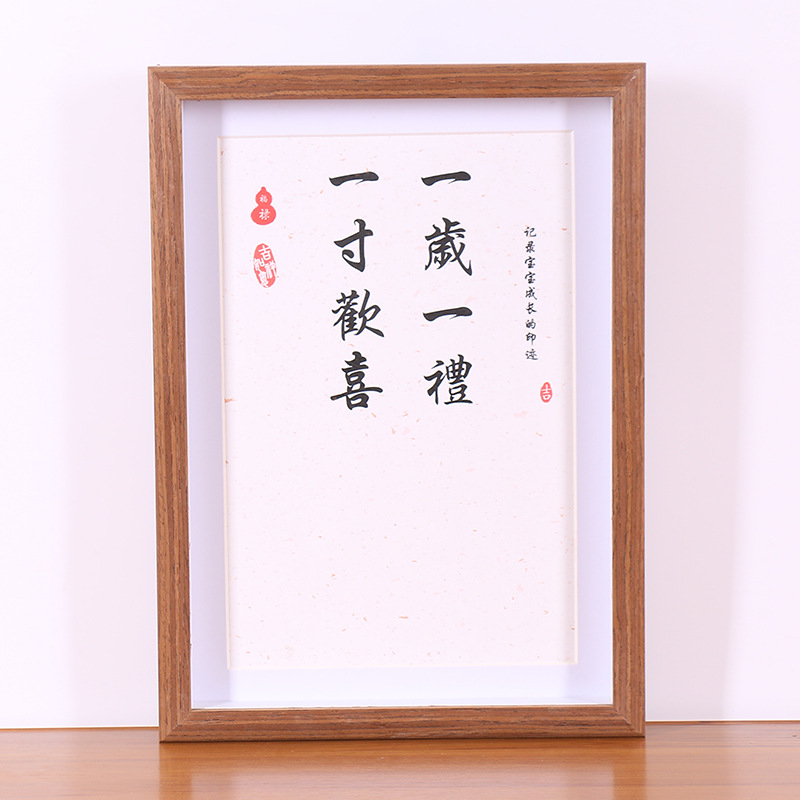 记录宝宝成长的印迹
吉
一歲一禮
一寸歡喜
福
禄
吉祥如意